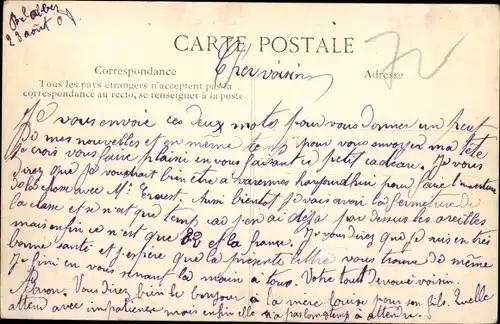 23 août
CARTE POSTALE
Cher voisin
Correspondance
Adresse
Tous les pays étrangers n'acceptent pas la
correspondance au recto, se renseigner à la poste.
Je vous envoie ces deux mots pour vous donner un peut
de mes nouvelles et en même temp pour vous envoyer ma tête
Je crois vous faire plaisir en vous faisant ce petit cadeau. Je vous
direz que je voudrait bien être a varennes pour faire l'ouverture
de la chasse avec Mr Ernest. Aussi bientot je vais avoir la fermeture de
la classe et se n'est que temp car j'en ai deja par dessus les oreilles
mais enfin ce n'est que 22 et la france. Je vous direz que je suis en très
bonne santé et j'espere que la présente lettre vous trouve de même
Je fini en vous serrant la main à tous. Votre tout devoué voisin.
Vous direz bien le bonjour à la mère louise pour son fils. Quelle
attend avec impatience mais enfin elle n'a pas longtemp a attendre.